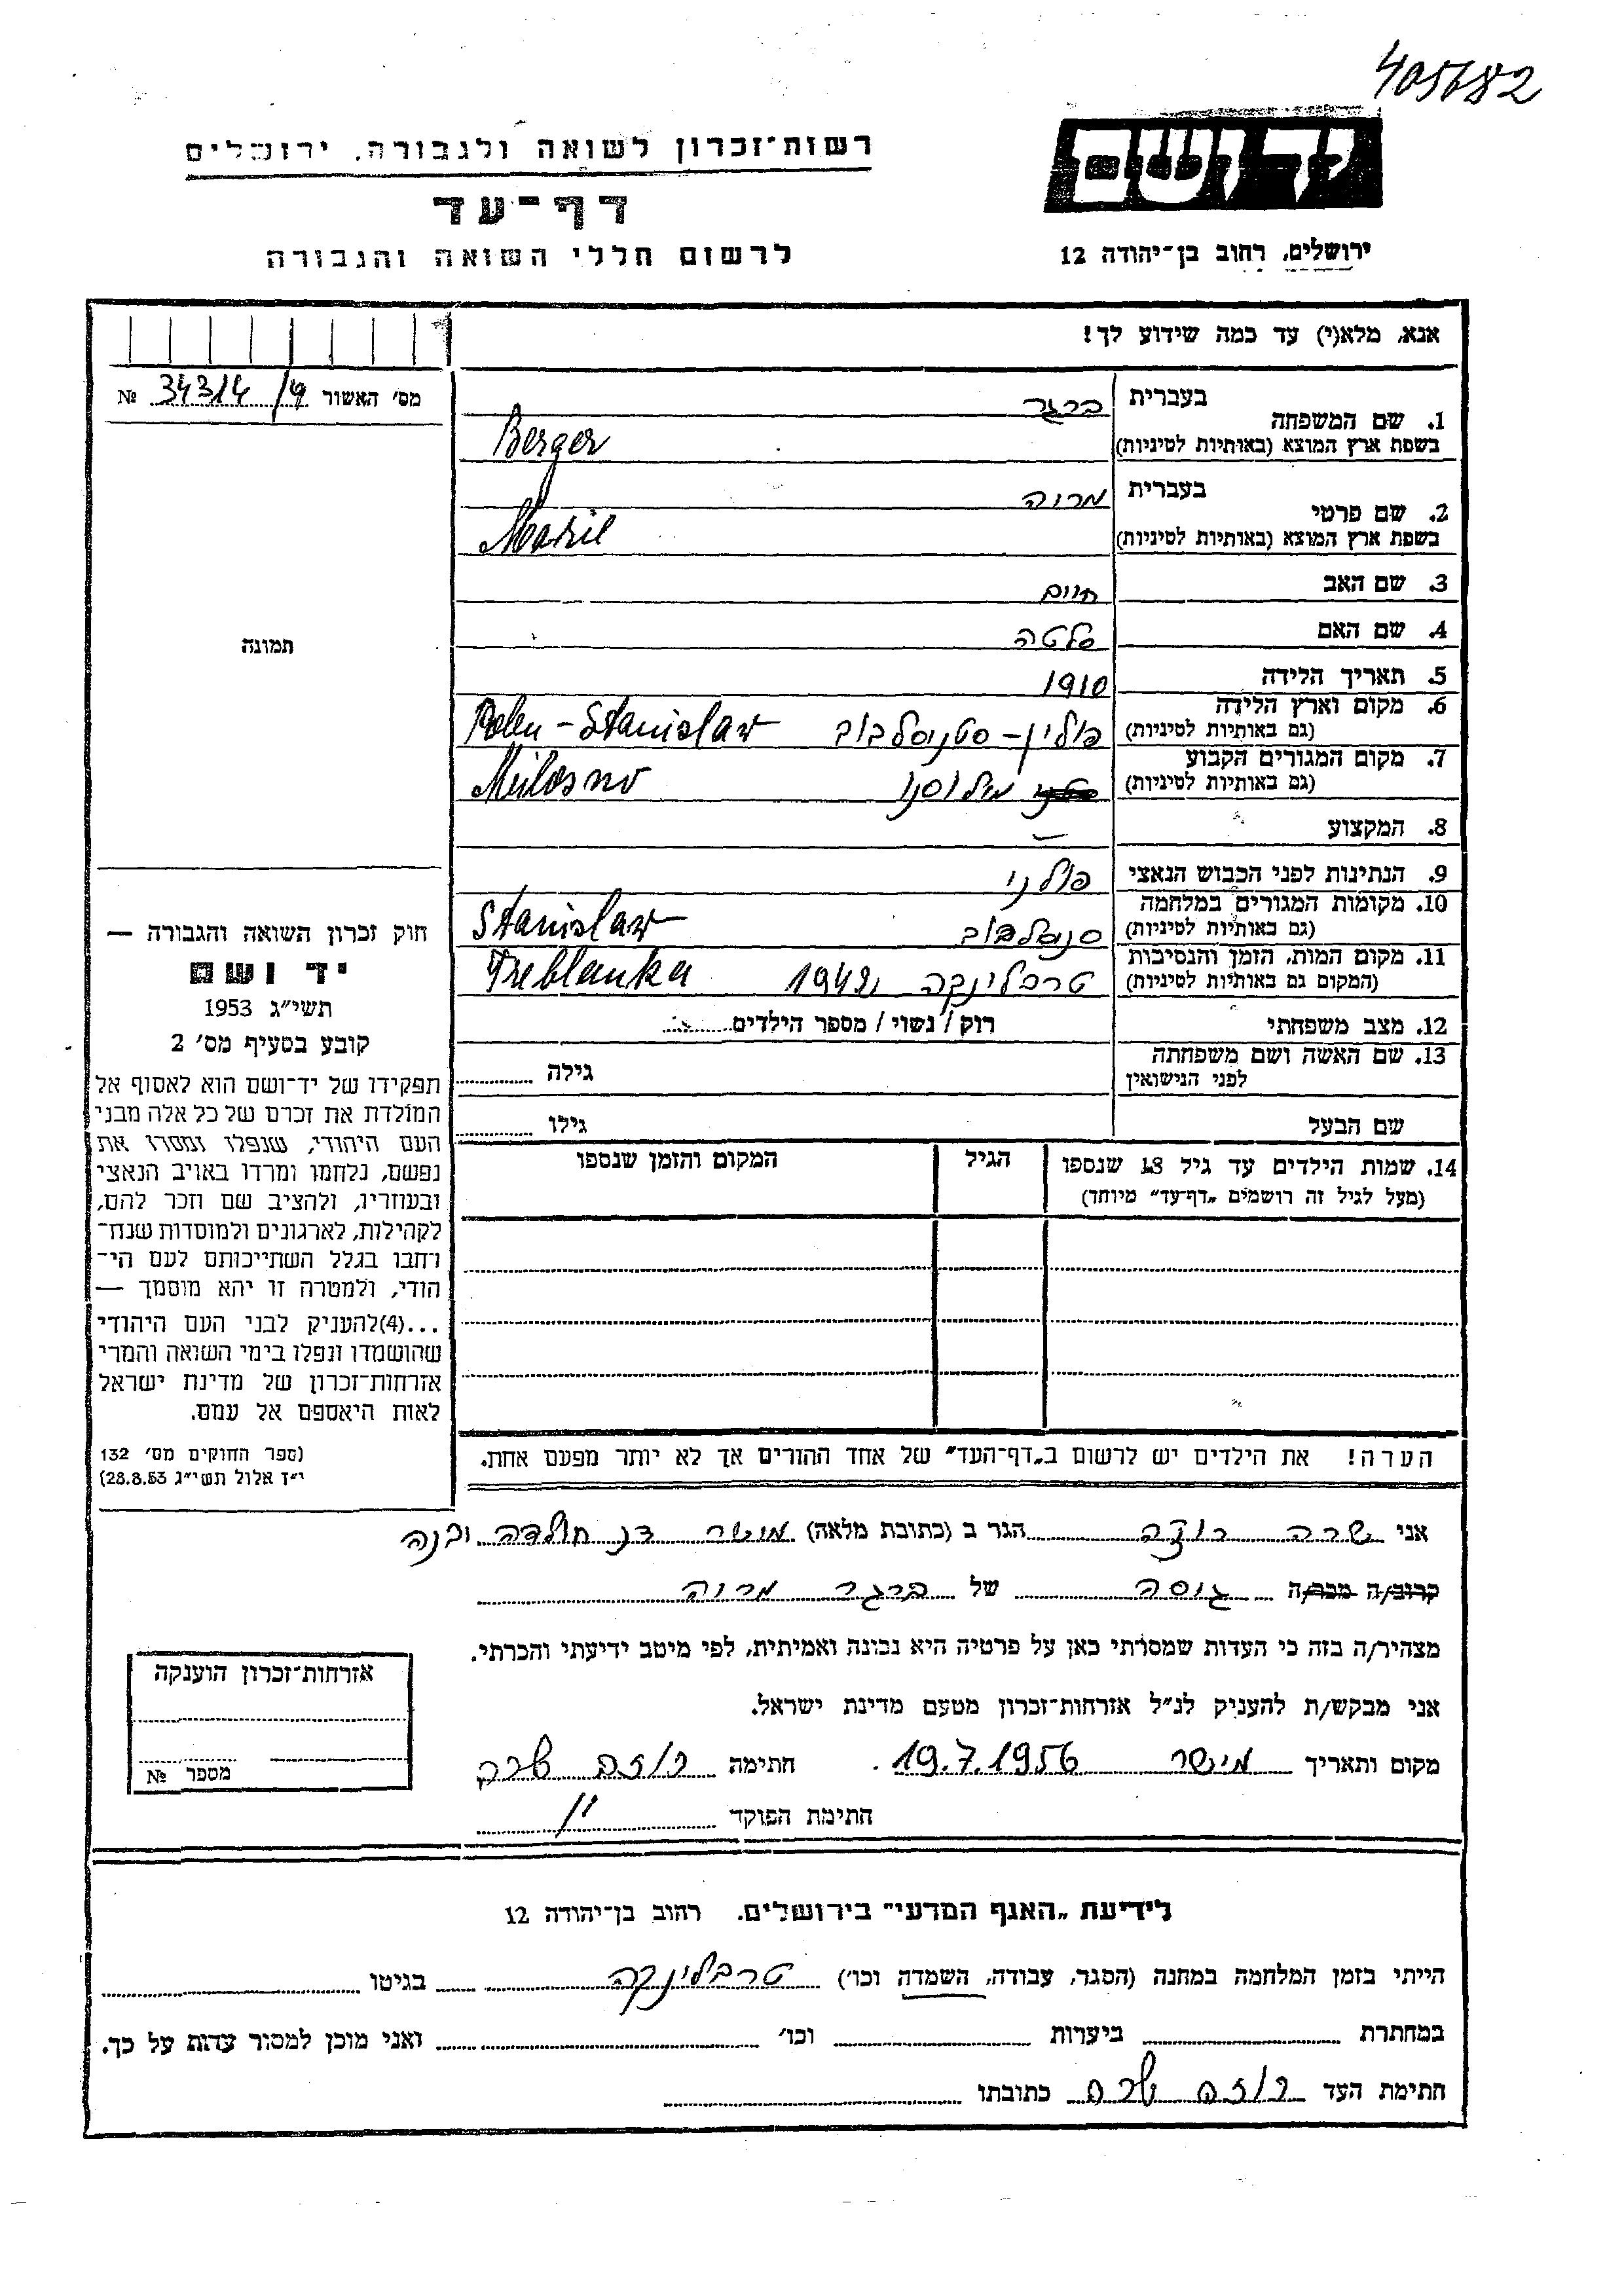 405782
יד ושם
רשות־זכרון לשואה ולגבורה, ירושלים
דף־עד
לרשום חללי השואה והגבורה
ירושלים, רחוב בן־יהודה 12
אנא, מלא(י) עד כמה שידוע לך!
מס׳ האשור 34314/9 №
תמונה
1. שם המשפחה בעברית ברגר
בשפת ארץ המוצא (באותיות לטיניות) Berger
2. שם פרטי בעברית
בשפת ארץ המוצא (באותיות לטיניות)
3. שם האב חיים
4. שם האם
5. תאריך הלידה 1910
6. מקום וארץ הלידה
(גם באותיות לטיניות) פולין – סטניסלבוב Polen – Stanislaw
7. מקום המגורים הקבוע
(גם באותיות לטיניות) מילוסנו Milosno
8. המקצוע —
9. הנתינות לפני הכבוש הנאצי פולני
10. מקומות המגורים במלחמה
(גם באותיות לטיניות) Stanislaw
11. מקום המות, הזמן והנסיבות
(המקום גם באותיות לטיניות) טרבלינקה 1942 Treblanka
12. מצב משפחתי רוק / נשוי / מספר הילדים
13. שם האשה ושם משפחתה
לפני הנישואין גילה
שם הבעל גילו
14. שמות הילדים עד גיל 18 שנספו
(מעל לגיל זה רושמים „דף־עד״ מיוחד)
הגיל
המקום והזמן שנספו
הערה! את הילדים יש לרשום ב„דף־העד״ של אחד ההורים אך לא יותר מפעם אחת.
חוק זכרון השואה והגבורה —
יד ושם
תשי״ג 1953
קובע בסעיף מס׳ 2
תפקידו של יד־ושם הוא לאסוף אל
המולדת את זכרם של כל אלה מבני
העם היהודי, שנפלו ומסרו את
נפשם, נלחמו ומרדו באויב הנאצי
ובעוזריו, ולהציב שם וזכר להם,
לקהילות, לארגונים ולמוסדות שנח־
רחבו בגלל השתייכותם לעם הי־
הודי, ולמטרה זו יהא מוסמך —
...(4)להעניק לבני העם היהודי
שהושמדו ונפלו בימי השואה והמרי
אזרחות־זכרון של מדינת ישראל
לאות היאספם אל עמם.
(ספר החוקים מס׳ 132
י״ז אלול תשי״ג 28.8.53)
אני שרה רוזה הגר ב (כתובת מלאה)
קרוב/ה מכר/ה גיסה של ברגר
מצהיר/ה בזה כי העדות שמסרתי כאן על פרטיה היא נכונה ואמיתית, לפי מיטב ידיעתי והכרתי.
אני מבקש/ת להעניק לנ״ל אזרחות־זכרון מטעם מדינת ישראל.
מקום ותאריך מישר 19.7.1956. חתימה רוזה שרה
חתימת הפוקד
אזרחות־זכרון הוענקה
מספר №
לידיעת „האגף המדעי״ בירושלים, רחוב בן־יהודה 12
הייתי בזמן המלחמה במחנה (הסגר, עבודה, השמדה וכו׳) טרבלינקה בגיטו
במחתרת ביערות וכו׳ ואני מוכן למסור עדות על כך.
חתימת העד רוזה שרה כתובתו